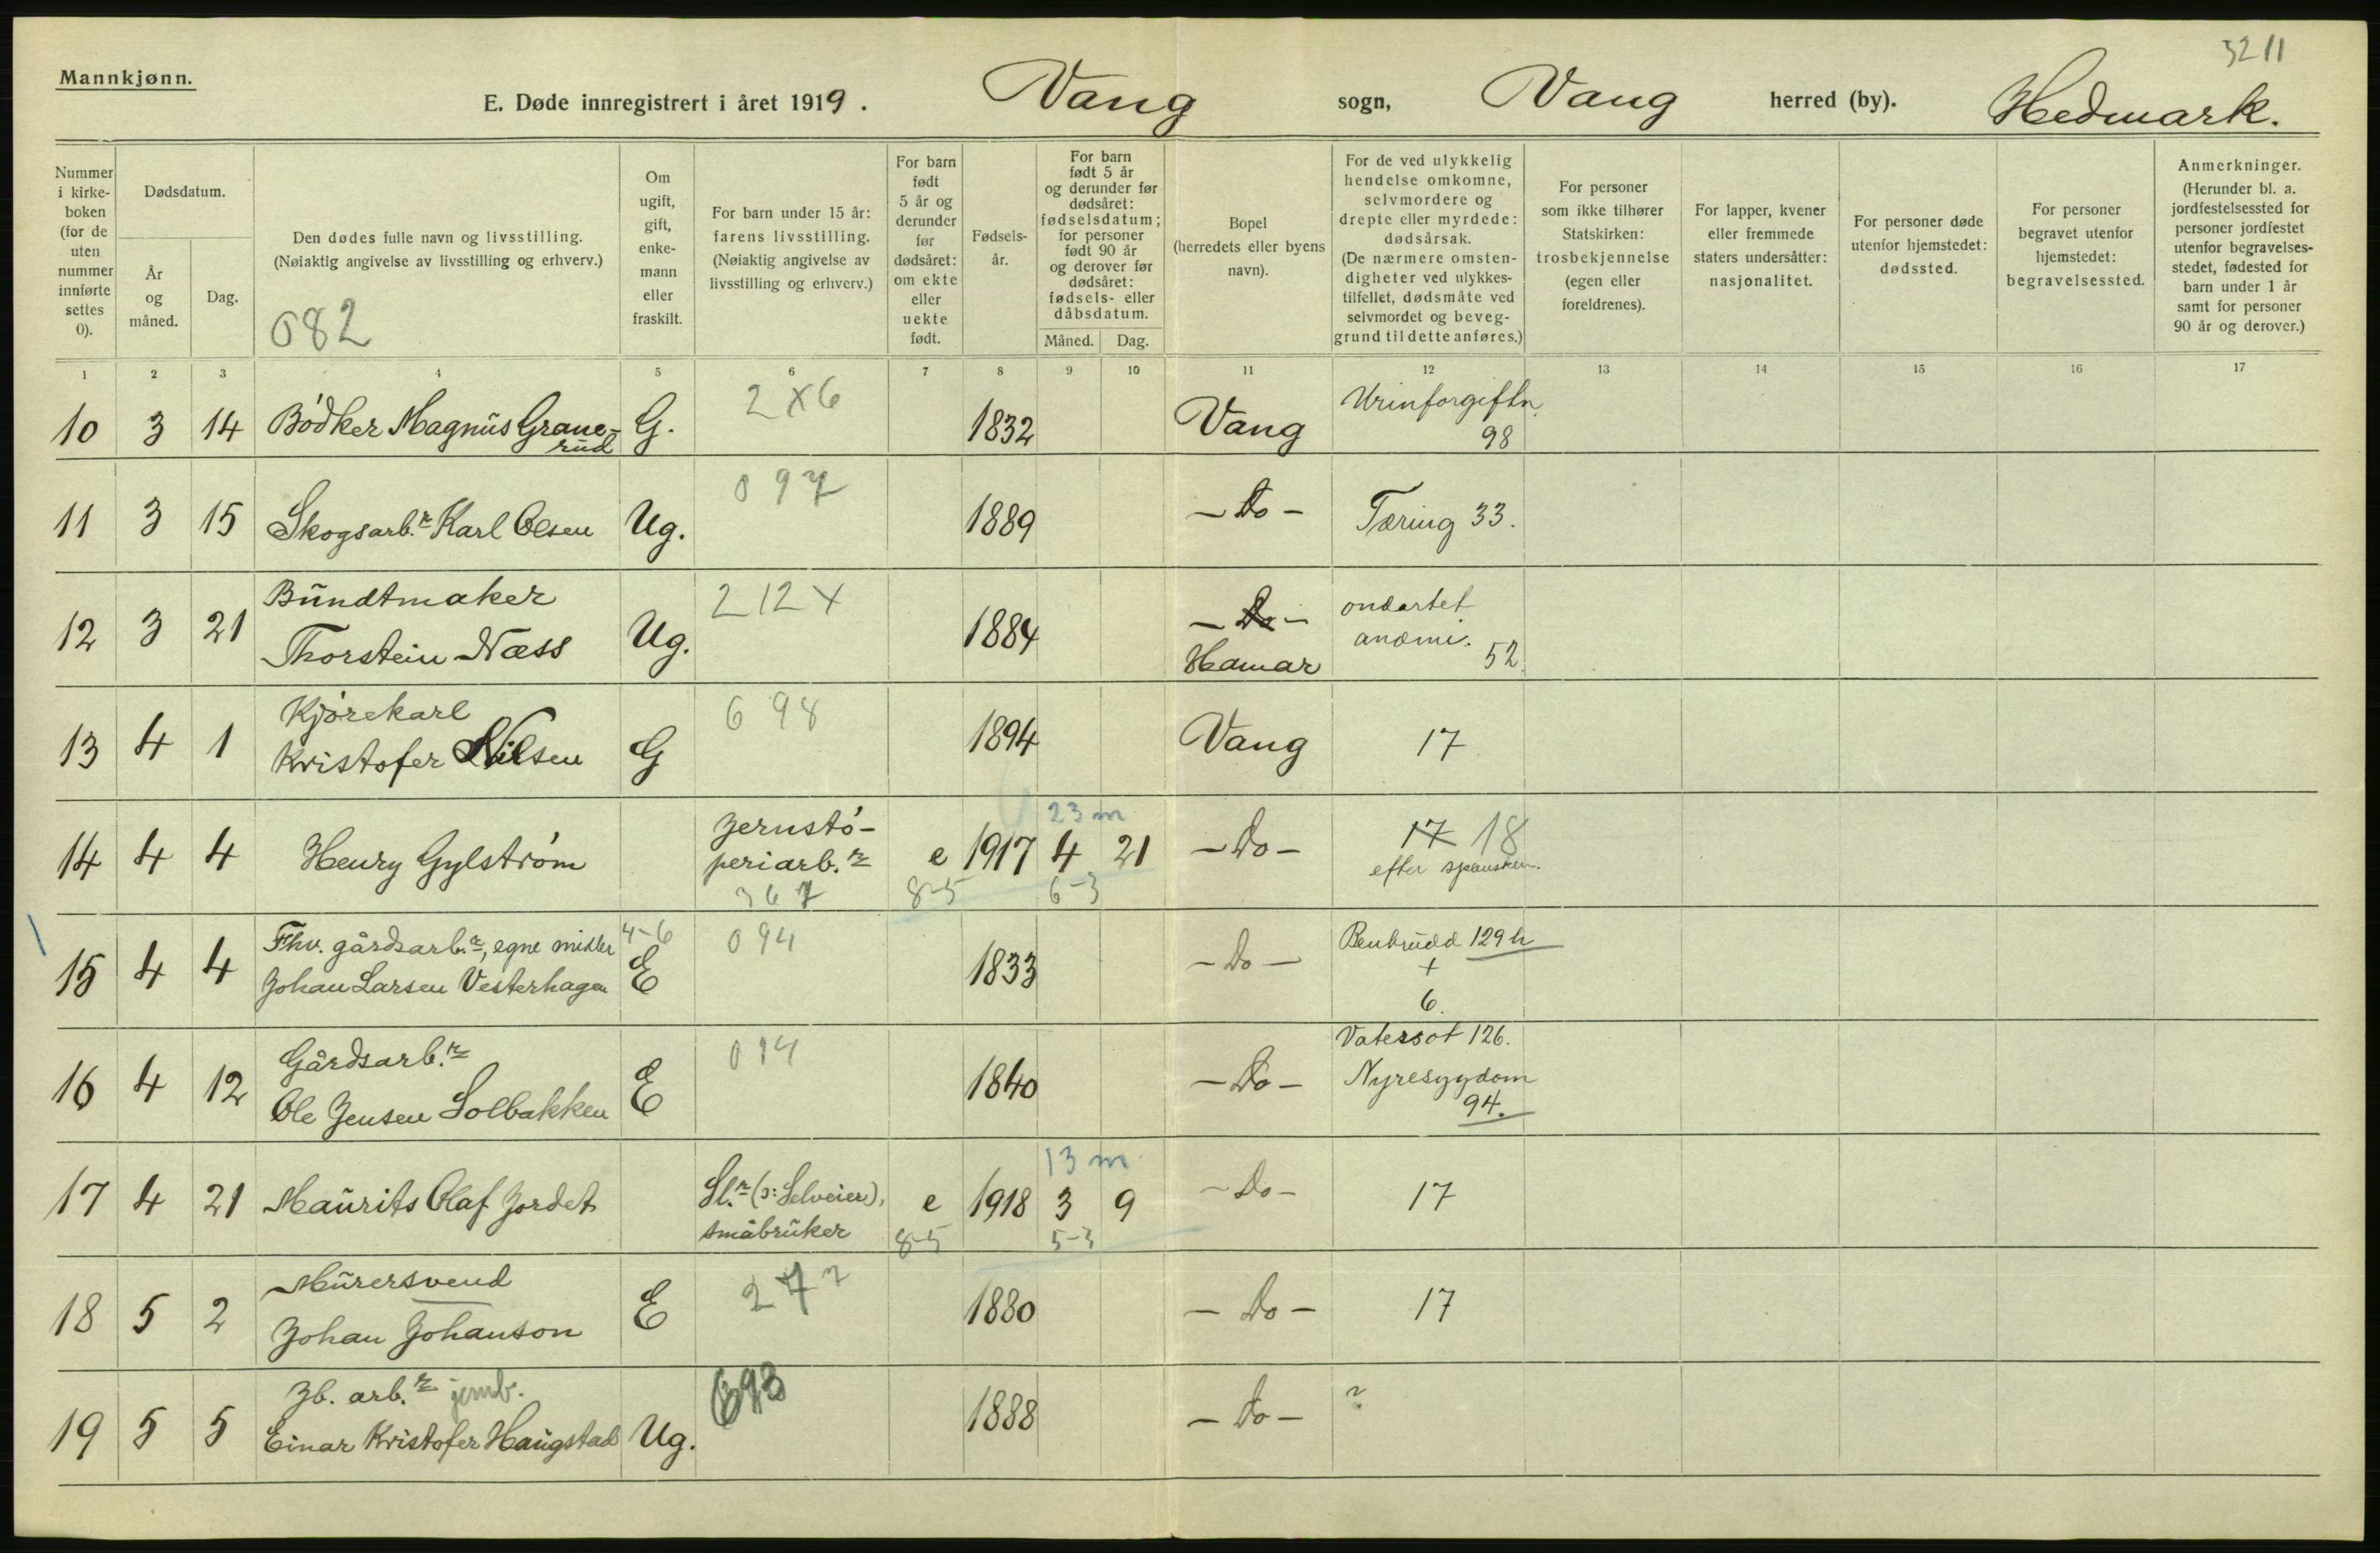 3211
Mannkjønn.
E. Døde innregistrert i året 1919. Vang sogn, Vang herred (by). Hedmark.
Nummer i kirke-boken (for de uten nummer innførte settes 0).
Dødsdatum.
År og måned.
Dag.
Den dødes fulle navn og livsstilling.
(Nøiaktig angivelse av livsstilling og erhverv.)
082
Om ugift, gift, enke-mann eller fraskilt.
For barn under 15 år: farens livsstilling.
(Nøiaktig angivelse av livsstilling og erhverv.)
For barn født 5 år og derunder før dødsåret: om ekte eller uekte født.
Fødsels-år.
For barn født 5 år og derunder før dødsåret: fødselsdatum; for personer født 90 år og derover før dødsåret: fødsels- eller dåbsdatum.
Måned. Dag.
Bopel (herredets eller byens navn).
For de ved ulykkelig hendelse omkomne, selvmordere og drepte eller myrdede: dødsårsak.
(De nærmere omsten-digheter ved ulykkes-tilfellet, dødsmåte ved selvmordet og beveg-grund til dette anføres.)
For personer som ikke tilhører Statskirken: trosbekjennelse (egen eller foreldrenes).
For lapper, kvener eller fremmede staters undersåtter: nasjonalitet.
For personer døde utenfor hjemstedet: dødssted.
For personer begravet utenfor hjemstedet: begravelsessted.
Anmerkninger.
(Herunder bl. a. jordfestelsessted for personer jordfestet utenfor begravelses-stedet, fødested for barn under 1 år samt for personer 90 år og derover.)
1 2 3 4 5 6 7 8 9 10 11 12 13 14 15 16 17
2X6 Urinforgiftn.
10 3 14 Bödker Magnus Grane- G. 1832 Vang
rud 98
097
11 3 15 Skogsarb.r Karl Olsen Ug. 1889 - Do - Tæring 33.
Bundtmaker 212X ondartet
12 3 21 Ug. 1884 - Do - anæmi.
Thorstein Næss Hamar 52
Kjørekarl 698
13 4 1 G 1894 Vang 17
Kristofer Nilsen
Jernstö- 23 m
14 4 4 Henry Gylström periarb.r e 1917 4 21 - Do - 17 18
367 8-5 6-3 efter spansken.
Fhv. gårdsarb.r, egne midler 4-6 094 Benbrudd 129h
15 4 4 E 1833 - Do - +
Johan Larsen Vesterhagen 6.
Gårdsarb.r 014 Vatersot 126.
16 4 12 E 1840 - Do - Nyresygdom
Ole Jensen Solbakken 94.
Sl.r (ɔ: Selveier), 13 m
17 4 21 Maurits Olaf Jordet e 1918 3 9 - Do - 17
småbruker 8-5 5-3
Murersvend 277
18 5 2 E 1880 - Do - 17
Johan Johanson
Jb. arb.r jernb. 693
19 5 5 Ug. 1888 - Do - ?
Einar Kristofer Haugstad